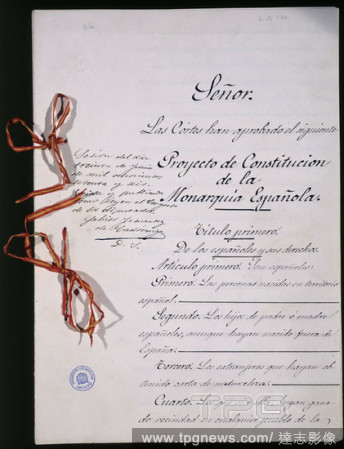 Señor:
Las Córtes han aprobado el siguiente
Proyecto de Constitucion
de la
Monarquía Española:
Sesion del dia
treinta de Junio
de mil ochocientos
setenta y seis.
de los Diputados
D. S.
Título primero.
De los españoles y sus derechos.
Artículo primero. Son españoles:
Primero. Las personas nacidas en territorio
español.
Segundo. Los hijos de padre ó madre
españoles, aunque hayan nacido fuera de
España.
Tercero. Los extranjeros que hayan ob-
tenido carta de naturaleza.
Cuarto. Los que sin ella hayan gana-
do vecindad en cualquier pueblo de la
TPG
www.tpgnews.com / 達志影像